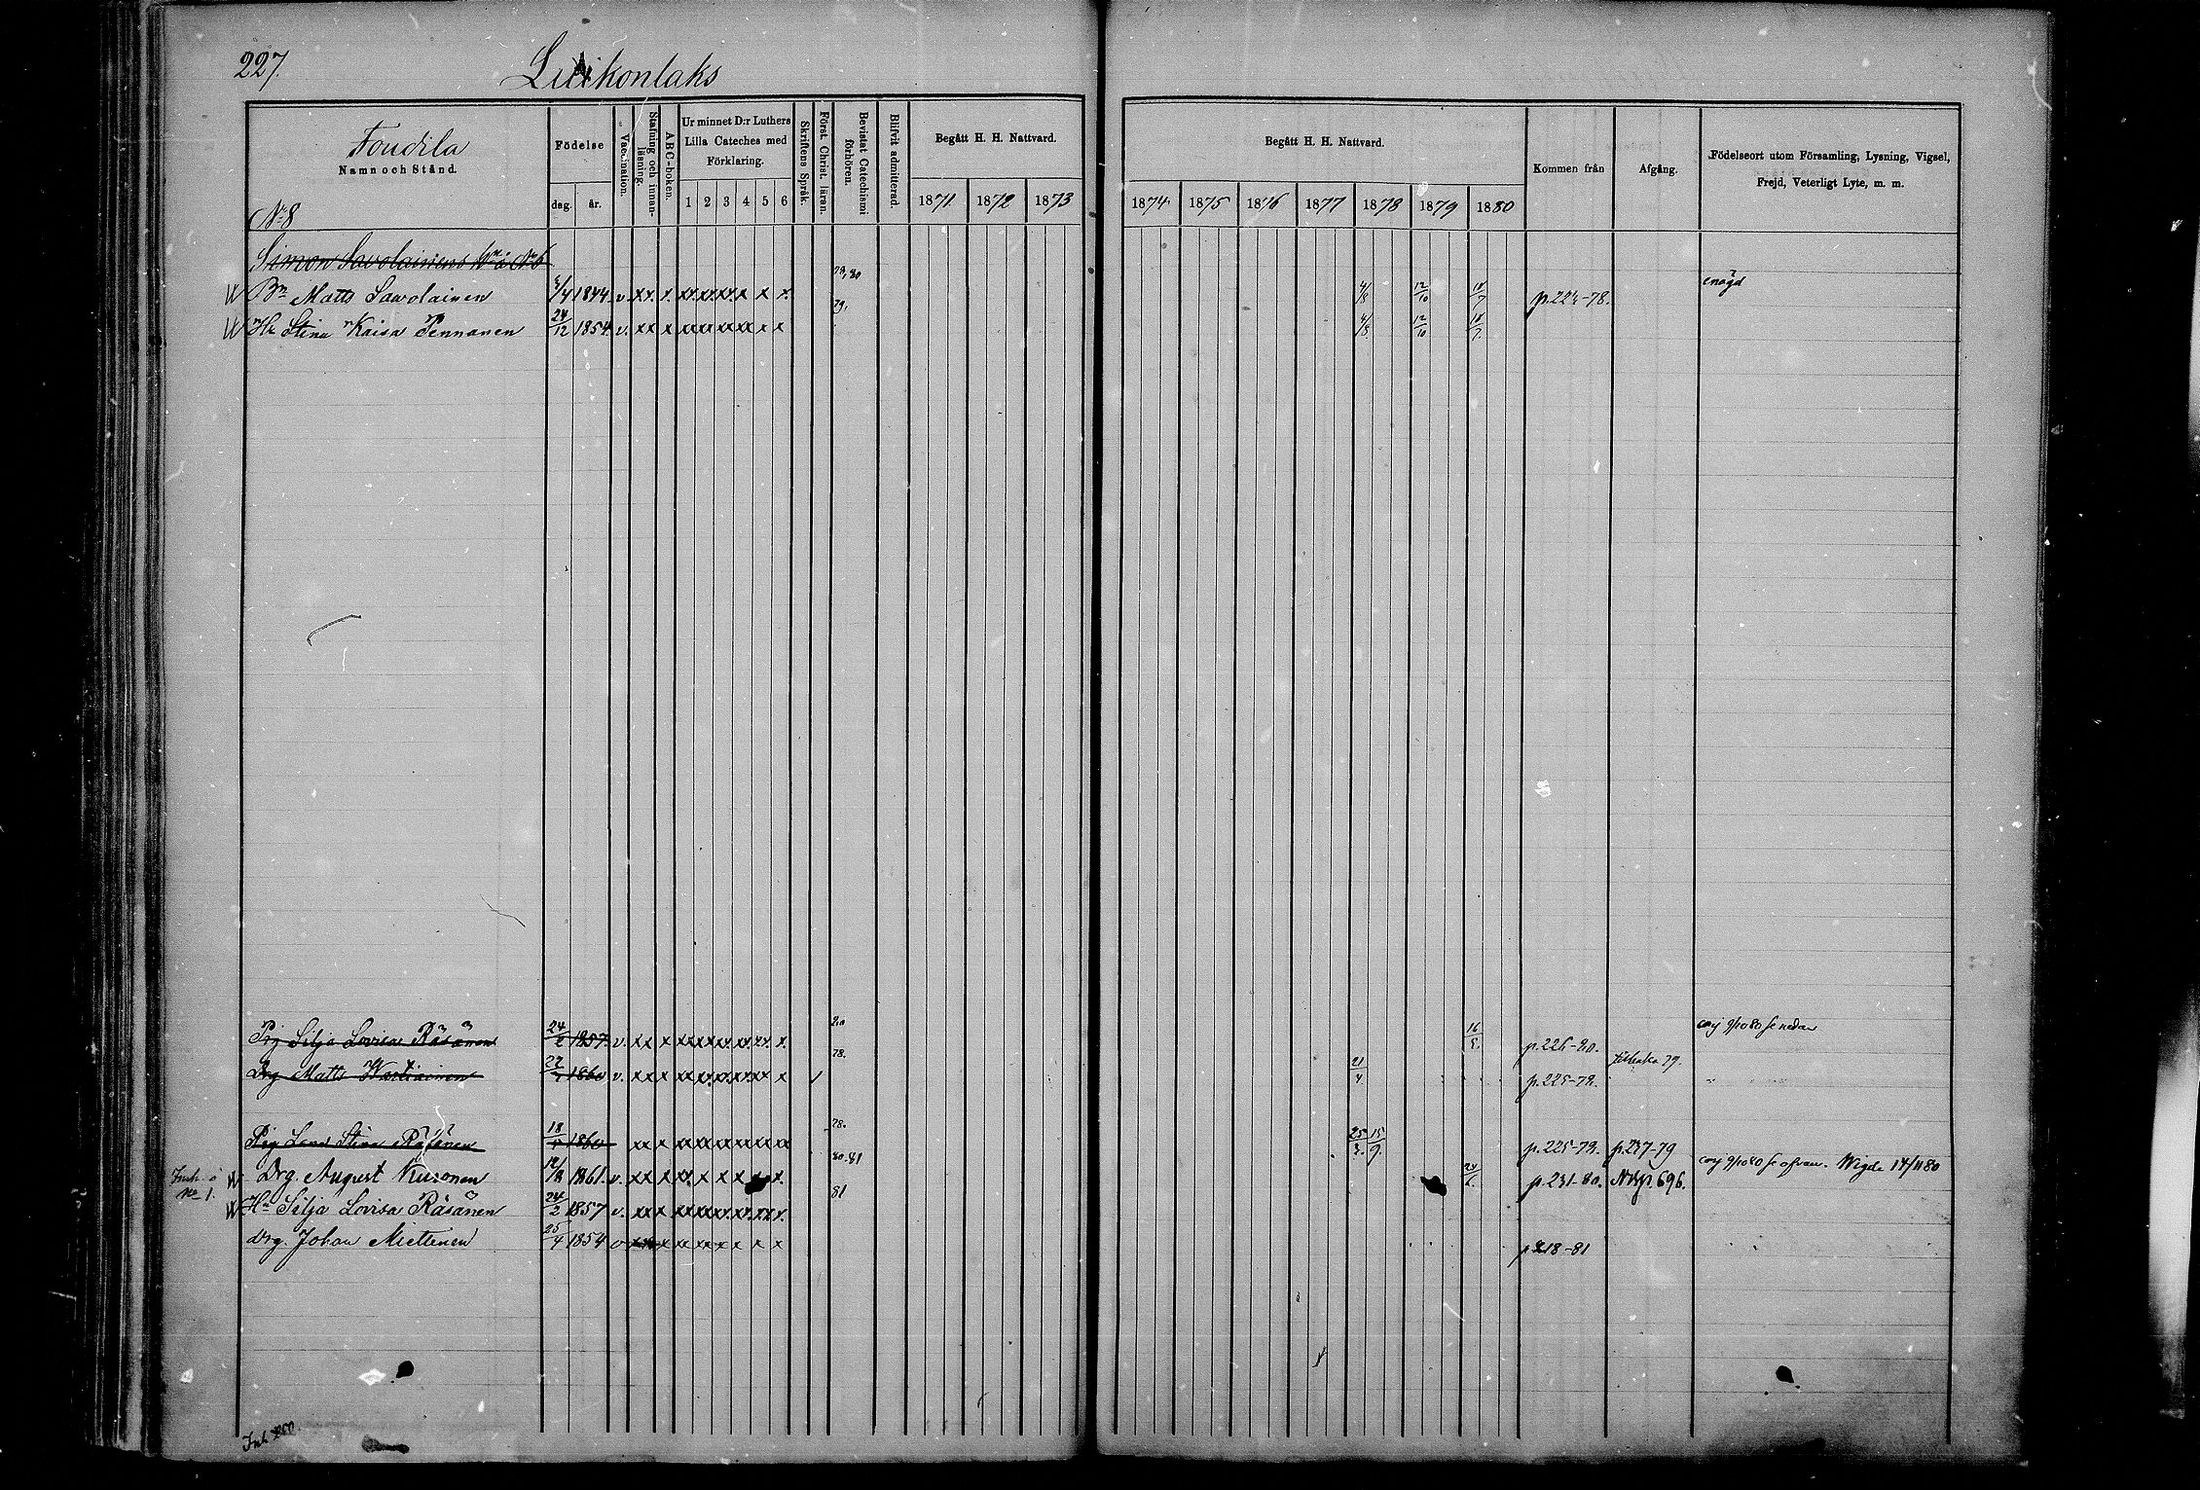 227.
Luikonlaks
Toudila
Namn och Stånd.
Födelse
dag. år.
Vaccination.
Stafning och innanläsning.
ABC-boken.
Ur minnet D:r Luthers Lilla Cateches med Förklaring.
1 2 3 4 5 6
Skriftens Språk.
Först. Christ. läran.
Bevistat Catechismi förhören.
Blifvit admitterad.
Begått H. H. Nattvard.
1871 1872 1873
Begått H. H. Nattvard.
1874 1875 1876 1877 1878 1879 1880
Kommen från
Afgång.
Födelseort utom Församling, Lysning, Vigsel, Frejd, Veterligt Lyte, m. m.
No 8
Simon Savolainens
Bn Matts Savolainen 1844 v. xx x xx xx xx x x x. 79, 80 4/8 12/10 18/7 p. 224-78. enögd
Hu Stina Kaisa Pennanen 24/12 1854 v. xx x xx xx xx xx x x 79, 4/8 12/10 18/7
Pig Silja Lovisa Räsänen 24/2 1857 v. xx x xx xx xx xx xx x. 80 16/5. p. 226-80. 9/10 80 se nedan
Drg Matts 1860 v. xx x xx xx xx xx xx x 78. 21/4 p. 225-78. 79.
Pig Lena Stina Räsänen 18 1860 xx x xx xx xx xx xx xx 78. 25/3. 15/9. p. 225-78. p. 237-79
No 1. Drg. August Kuronen 1861. v. xx x xx x x x x x. 80-81 p. 231-80. 696. 9/10 80 se ofvan. Wigde 14/11 80
Hu Silja Lovisa Räsänen 24/2 1857 v. xx x xx xx xx xx xx x. 81
drg. Johan Miettinen 25/4 1854 v xx x xx xx x x x x p 218-81
Inh.